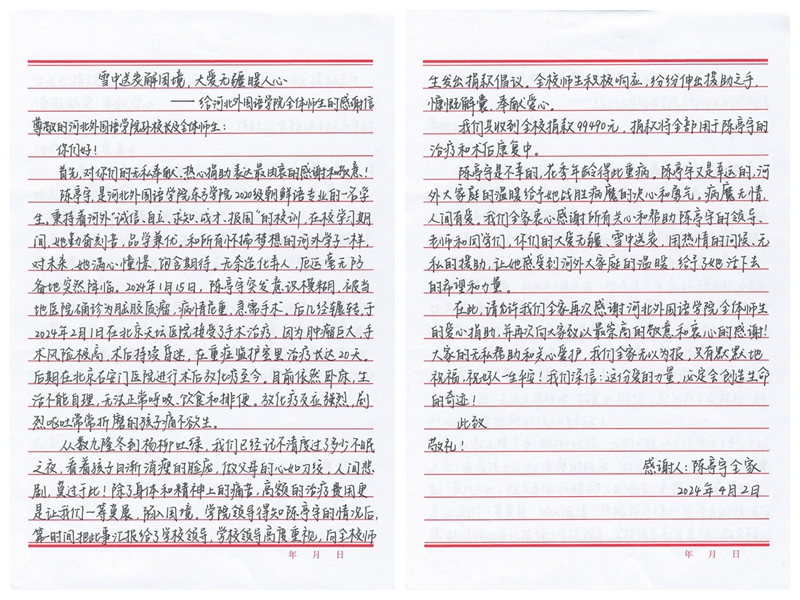 雪中送炭解困境，大爱无疆暖人心
——给河北外国语学院全体师生的感谢信
尊敬的河北外国语学院孙校长及全体师生：
你们好！
首先，对你们的无私奉献、热心捐助表达最由衷的感谢和敬意！
陈亭宇，是河北外国语学院东方学院2020级朝鲜语专业的一名学
生。秉持着河外"诚信、自立、求知、成才、报国"的校训，在校学习期
间，她勤奋刻苦，品学兼优，和所有怀揣梦想的河外学子一样，
对未来，她满心憧憬，饱含期待。无奈造化弄人，厄运毫无防
备地突然降临。2024年1月15日，陈亭宇突发意识模糊，被当
地医院确诊为脑胶质瘤，病情危重，急需手术。后几经辗转，于
2024年2月1日在北京天坛医院接受了手术治疗，因为肿瘤巨大，手
术风险极高，术后持续昏迷，在重症监护室里治疗长达20天。
后期在北京右安门医院进行术后放化疗至今。目前依然卧床，生
活不能自理，无法正常呼吸、饮食和排便。放化疗反应强烈，剧
烈呕吐常常折磨的孩子痛不欲生。
从数九隆冬到杨柳吐绿，我们已经记不清度过了多少不眠
之夜，看着孩子日渐消瘦的脸庞，做父母的心如刀绞，人间悲
剧，莫过于此！除了身体和精神上的痛苦，高额的治疗费用更
是让我们一筹莫展，陷入困境。学院领导得知陈亭宇的情况后，
第一时间把此事汇报给了学校领导，学校领导高度重视，向全校师
年 月 日
生发出捐款倡议。全校师生积极响应，纷纷伸出援助之手，
慷慨解囊，奉献爱心。
我们总收到全校捐款99490元，捐款将全部用于陈亭宇的
治疗和术后康复中。
陈亭宇是不幸的，花季年龄得此重病。陈亭宇又是幸运的，河
外大家庭的温暖给予她战胜病魔的决心和勇气。病魔无情，
人间有爱。我们全家衷心感谢所有关心和帮助陈亭宇的领导、
老师和同学们，你们的大爱无疆、雪中送炭，用热情的问候、无
私的援助，让她感受到河外大家庭的温暖，给予了她活下去
的希望和力量。
在此，请允许我们全家再次感谢河北外国语学院全体师生
的爱心捐助，并再次向大家致以最崇高的敬意和衷心的感谢！
大家的无私帮助和关心爱护，我们全家无以为报，只有默默地
祝福，祝好人一生平安！我们深信：这份爱的力量，必定会创造生命
的奇迹！
此致
敬礼！
感谢人：陈亭宇全家
2024年4月2日
年 月 日